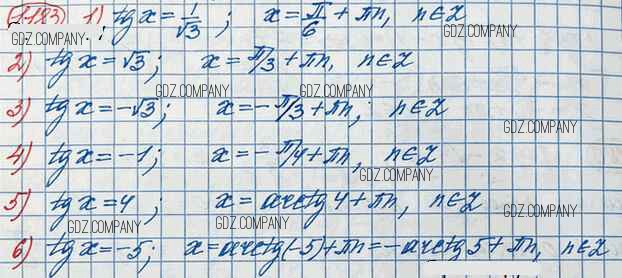 483) 1) tg x = 1/√3 ; x = π/6 + πn, n∈Z
GDZ.COMPANY GDZ.COMPANY
2) tg x = √3; x = π/3 + πn, n∈Z
GDZ.COMPANY GDZ.COMPANY
3) tg x = -√3; x = -π/3 + πn; n∈Z
GDZ.COMPANY
4) tg x = -1; x = -π/4 + πn, n∈Z
GDZ.COMPANY
5) tg x = 4 ; x = arctg 4 + πn, n∈Z
GDZ.COMPANY GDZ.COMPANY GDZ.COMPANY
6) tg x = -5; x = arctg(-5) + πn = -arctg 5 + πn, n∈Z